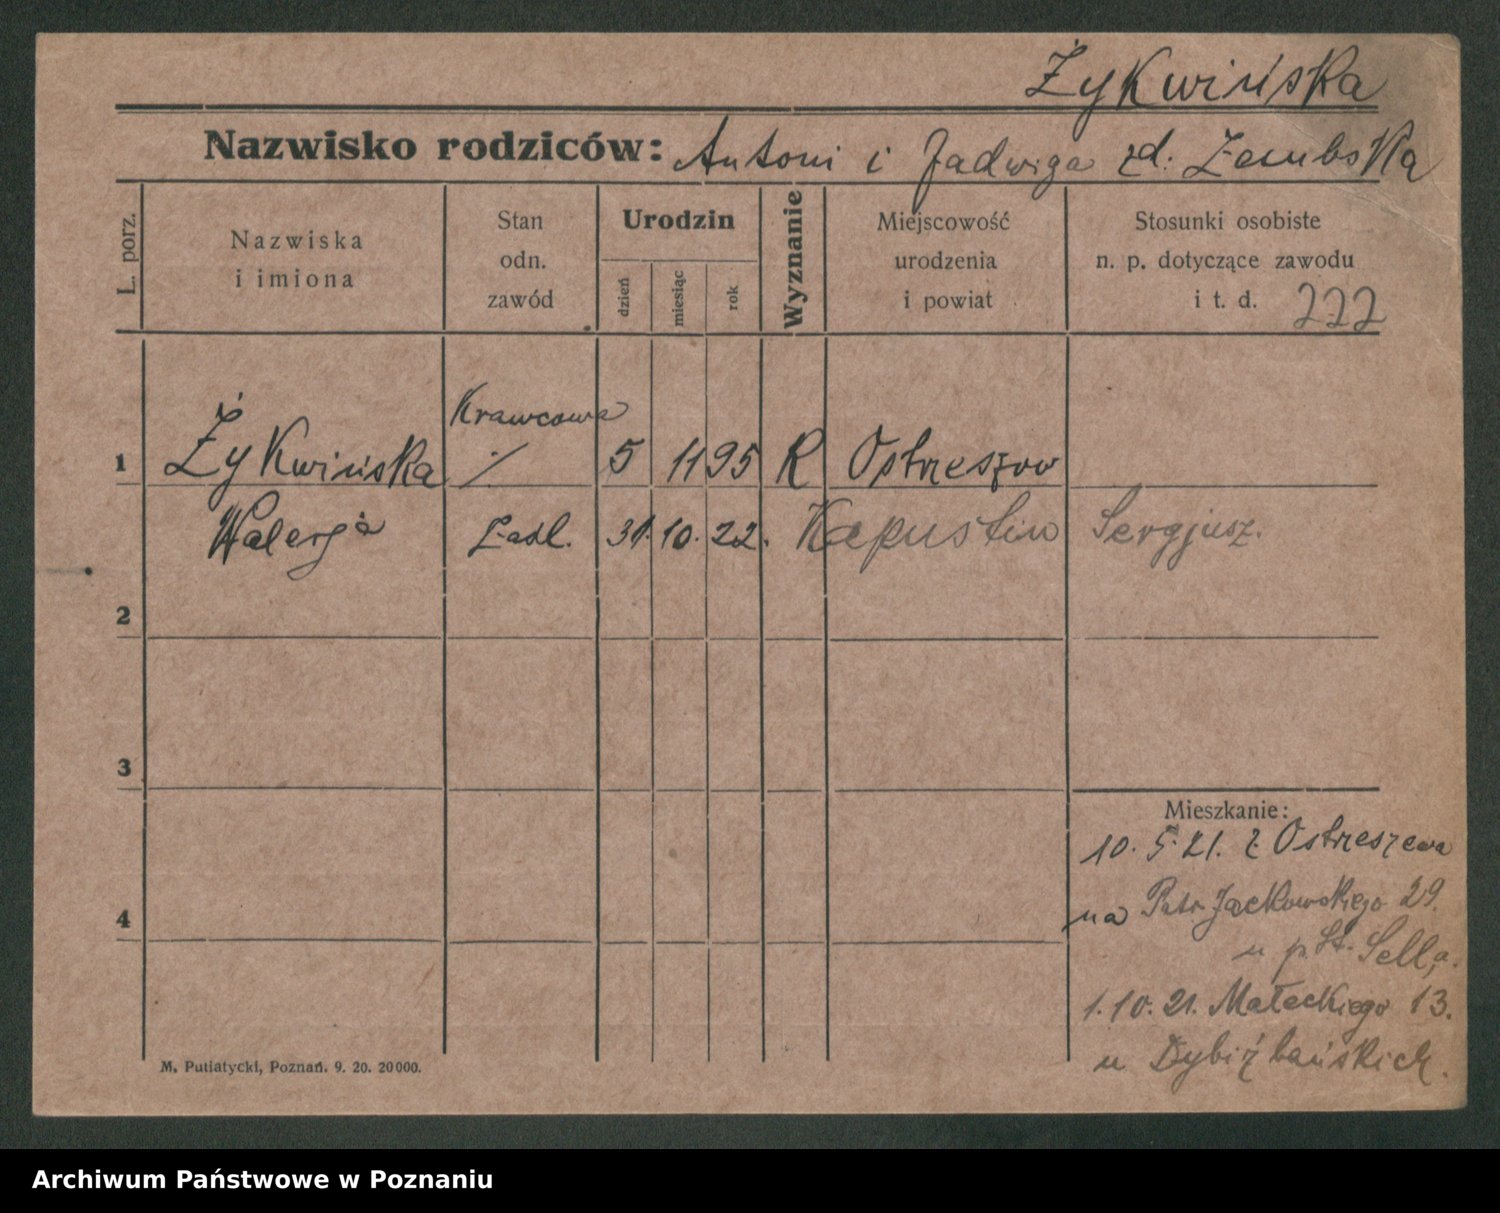 Żykwińska
Nazwisko rodziców: Antoni i Jadwiga zd. Zembska
L. porz.
Nazwiska
i imiona
Stan
odn.
zawód
Urodzin
dzień
miesiąc
rok
Wyznanie
Miejscowość
urodzenia
i powiat
Stosunki osobiste
n. p. dotyczące zawodu
i t. d. 222
Krawcowa
1 Żykwińska / 5 11 95 R Ostrzeszow
Walerja Zasl. 31. 10. 22. Kapustin Sergjusz.
2
3
Mieszkanie:
10. 5. 21. z Ostrzeszewa
na Patr. Jackowskiego 29.
4
u p. St. Sella.
1. 10. 21. Małeckiego 13.
u Dybizbańskich.
M. Putiatycki, Poznań. 9. 20. 20000.
Archiwum Państwowe w Poznaniu